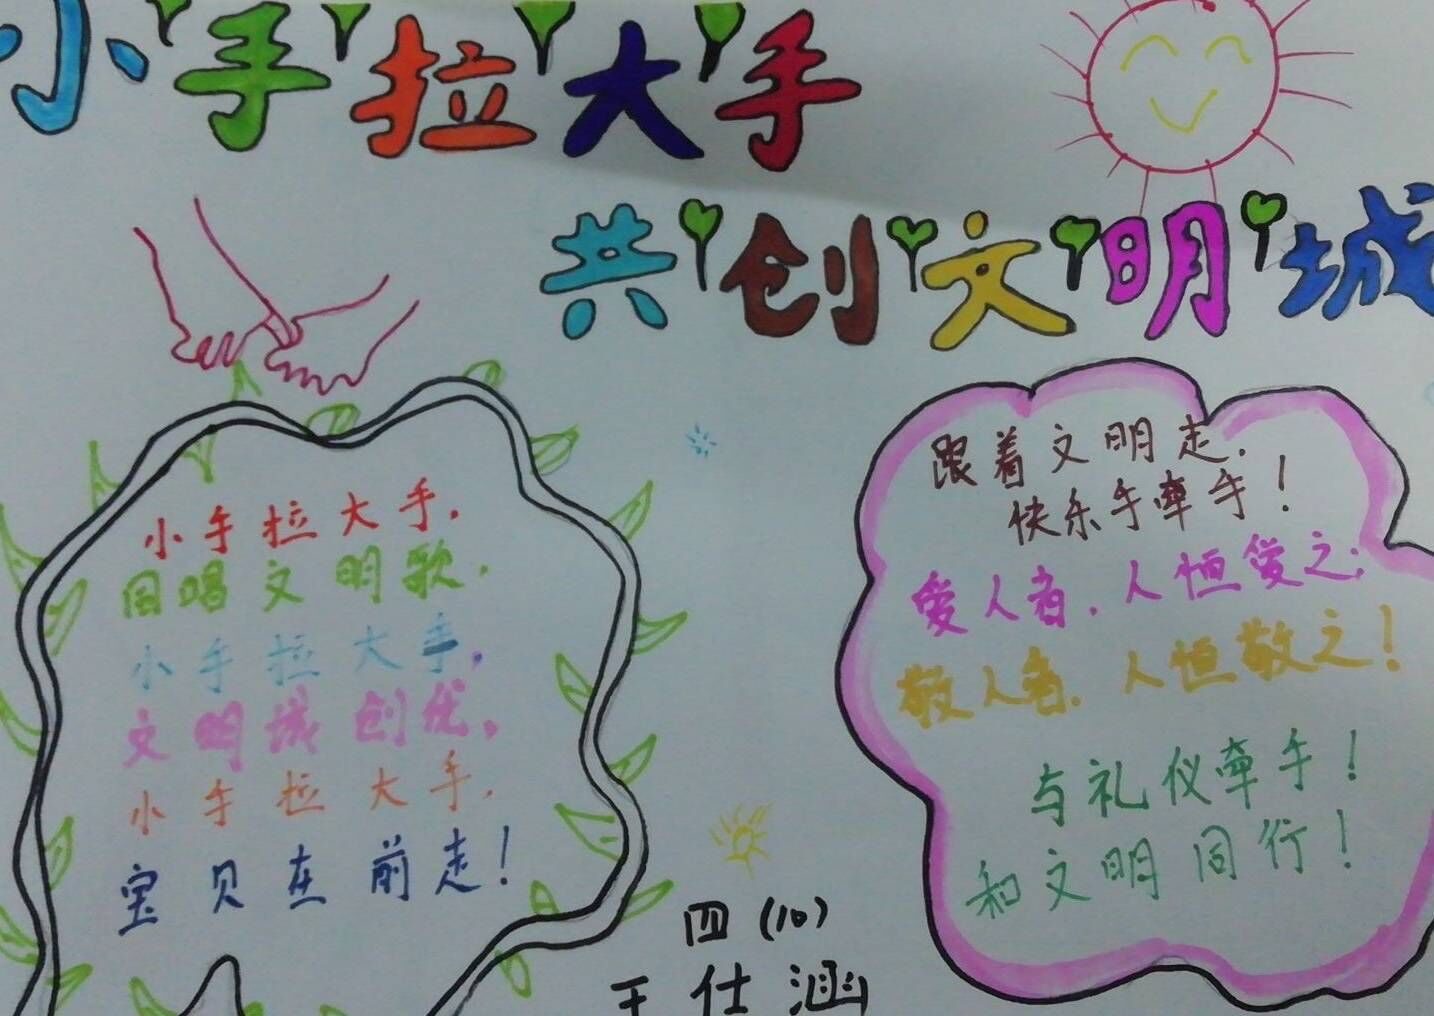 小手拉大手
共创文明城
小手拉大手，
同唱文明歌，
小手拉大手，
文明城创优，
小手拉大手，
宝贝在前走！
跟着文明走，
快乐手牵手！
爱人者，人恒爱之；
敬人者，人恒敬之！
与礼仪牵手！
和文明同行！
四（10）
王仕涵